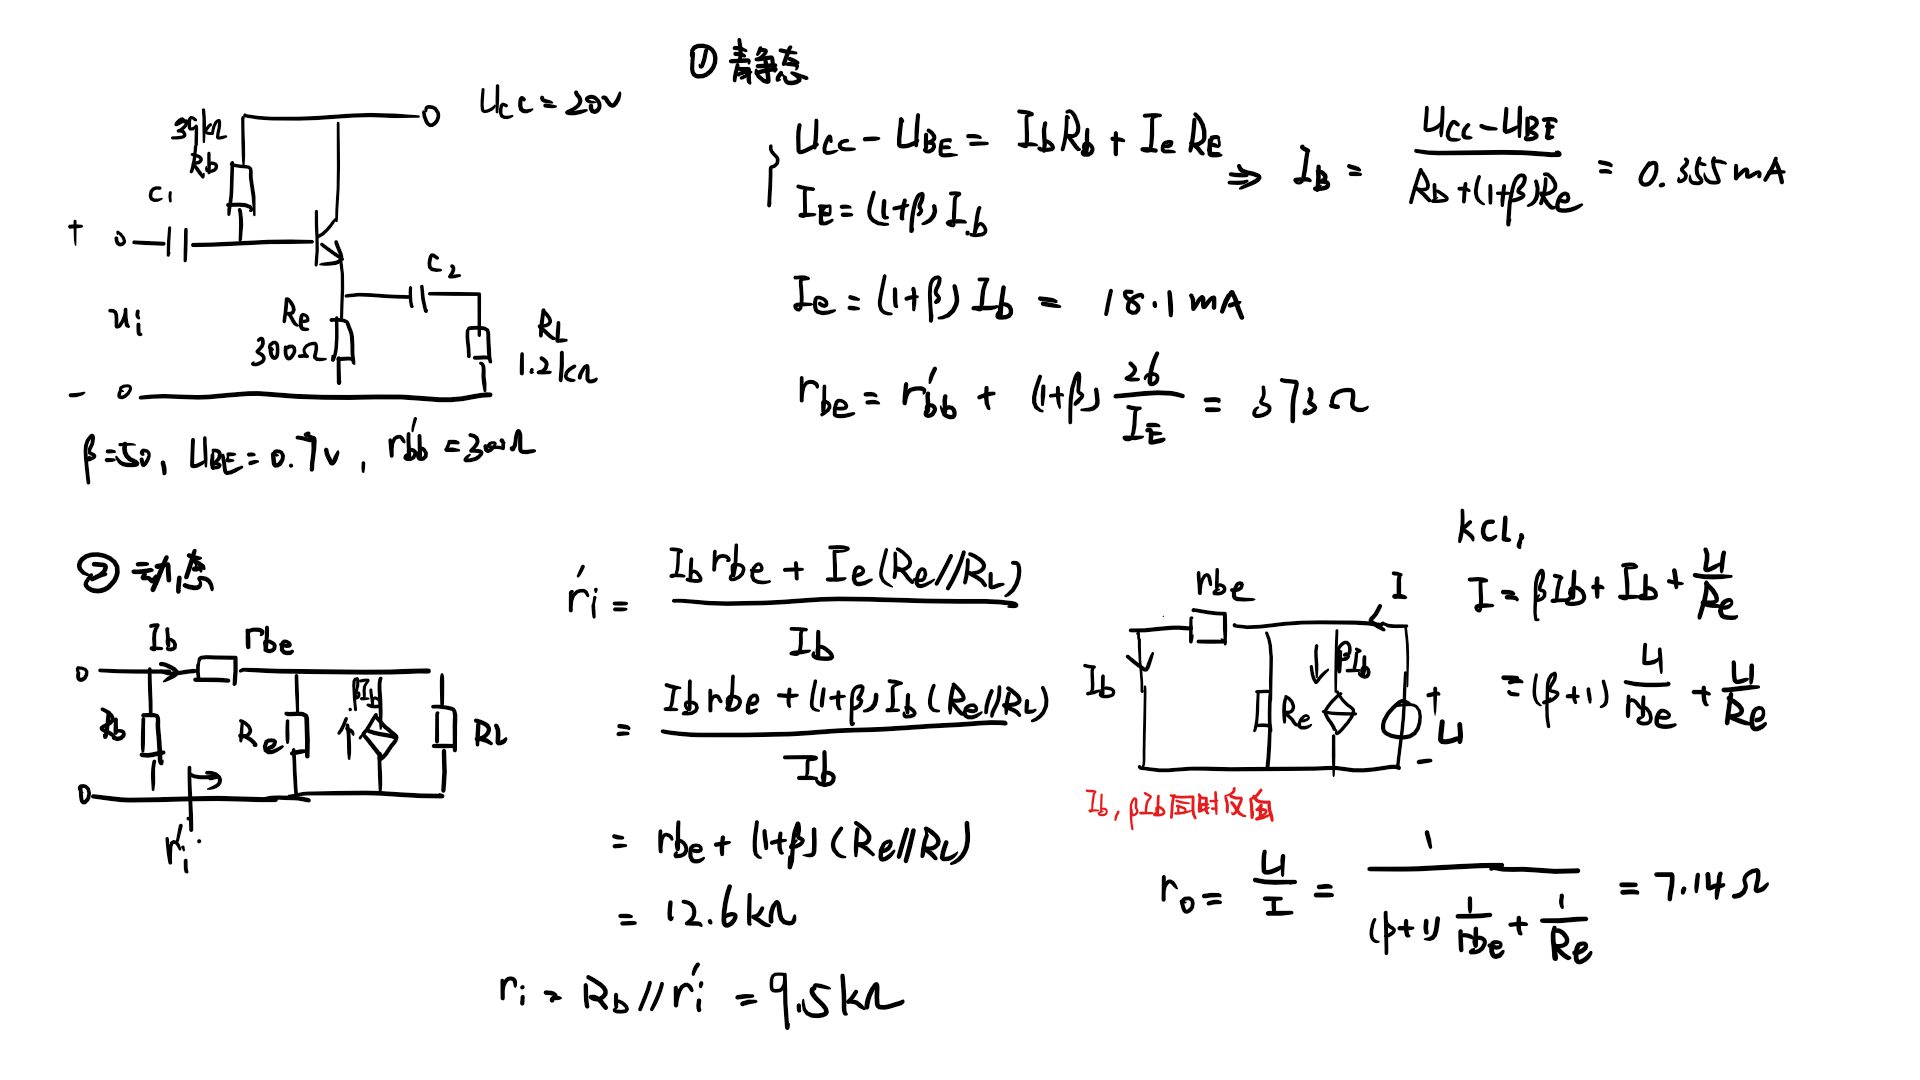 ① 静态
Ucc = 20V
39kΩ
Rb
C1
+
ui
-
Re
300Ω
C2
RL
1.2kΩ
β=50, UBE=0.7V, rbb' =300Ω
Ucc - UBE = IbRb + IeRe
IE = (1+β) Ib
⇒ IB = (Ucc-UBE)/(Rb+(1+β)Re) = 0.355mA
Ie = (1+β) Ib = 18.1mA
rbe = rbb' + (1+β) 26/IE = 373Ω
② 动态
Ib rbe
Rb Re βIb RL
ri'
ri' = (Ib rbe + Ie (Re//RL))/Ib
= (Ib rbe + (1+β) Ib (Re//RL))/Ib
= rbe + (1+β) (Re//RL)
= 12.6kΩ
ri = Rb // ri' = 9.5kΩ
rbe I
Ib Re βIb + U -
Ib, βIb同时反向
KCL,
I = βIb + Ib + U/Re
= (β+1) U/rbe + U/Re
ro = U/I = 1/((β+1) 1/rbe + 1/Re) = 7.14Ω